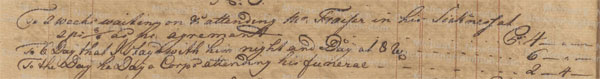 To 2 weeks waiting on & attending Mr. Fraiser in his Sickness at
as pr. agreamant £ 4 —
To 6 Day that I Stayd with him night and Day at 8 6 —
To the Day he Day a Corps attending his funerae 2 - 4 —